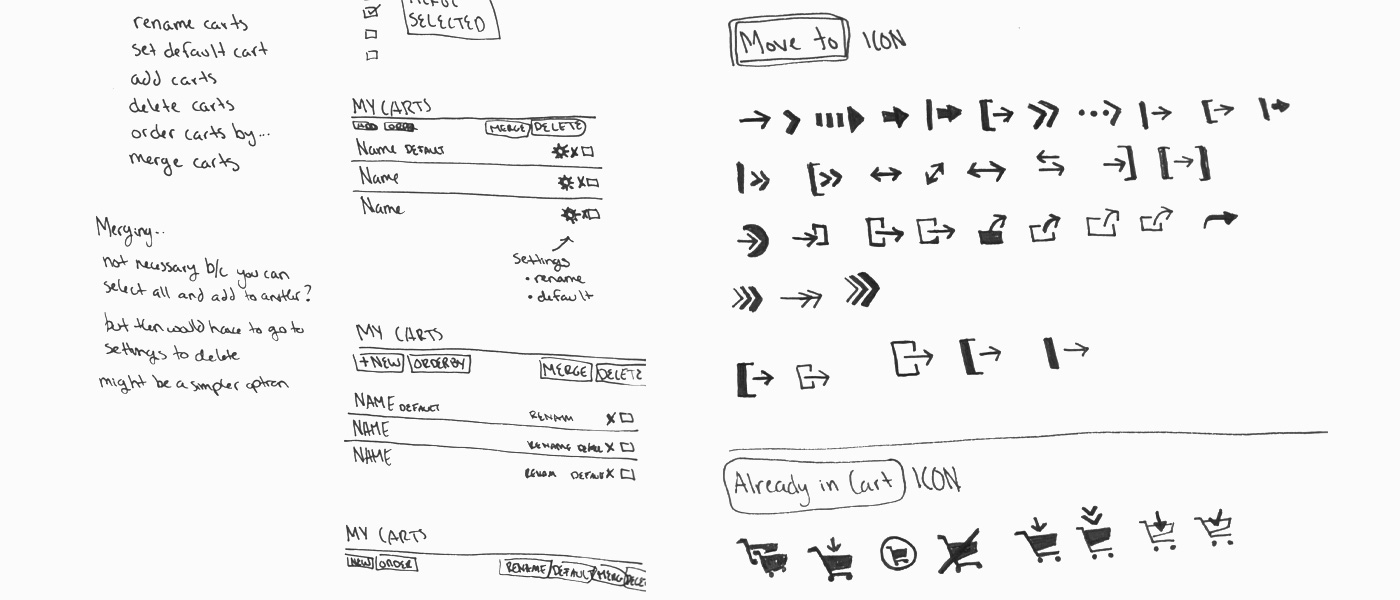 rename carts
set default cart
add carts
delete carts
order carts by...
merge carts
Merging..
not necessary b/c you can
select all and add to another?
but then would have to go to
settings to delete
might be a simpler option
SELECTED
MY CARTS
ADD ORDER
MERGE DELETE
Name DEFAULT
Name
Name
Settings
• rename
• default
MY CARTS
+NEW ORDER BY
MERGE DELETE
NAME DEFAULT
RENAM X
NAME
RENAME X
NAME
RENAM DEFAULT X
MY CARTS
NEW ORDER
RENAME DEFAULT MERG DELE
Move to ICON
Already in Cart ICON